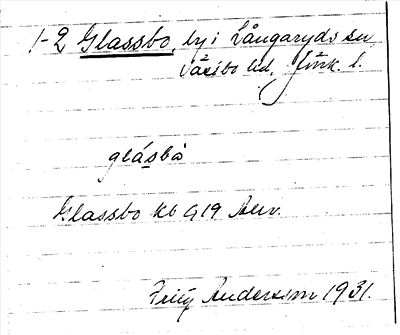 1-2 Glassbo, by i Långaryds sn,
Västbo hd, Jönk. l.
glásbo
Glassbo Kb G19 Anv.
Fritz Andersson 1931.